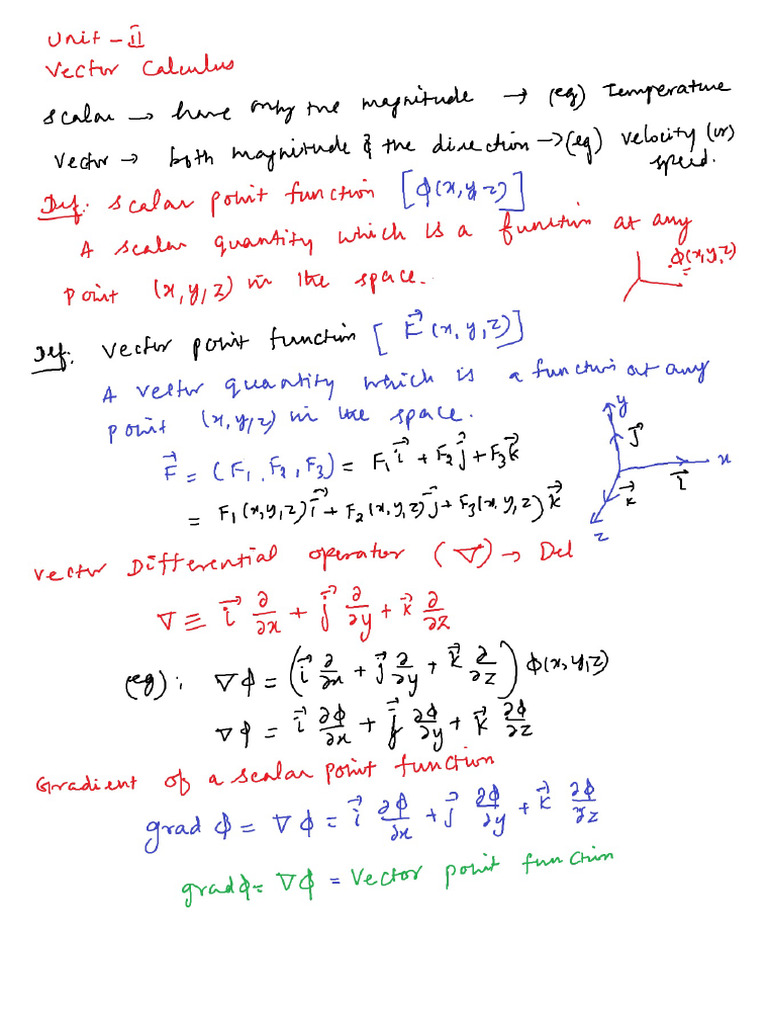 Unit - II
Vector Calculus
Scalar → have only the magnitude → (eg) Temperature
Vector → both magnitude & the direction → (eg) velocity (or) speed.
Def: Scalar point function [ϕ(x,y,z)]
A scalar quantity which is a function at any
point (x,y,z) in the space.
ϕ(x,y,z)
Def: Vector point function [F⃗(x,y,z)]
A vector quantity which is a function at any
point (x,y,z) in the space.
F⃗ = (F₁, F₂, F₃) = F₁i⃗ + F₂j⃗ + F₃k⃗
= F₁(x,y,z)i⃗ + F₂(x,y,z)j⃗ + F₃(x,y,z)k⃗
y
j⃗
x
i⃗
k⃗
z
Vector Differential operator (∇) → Del
∇ ≡ i⃗ ∂/∂x + j⃗ ∂/∂y + k⃗ ∂/∂z
(eg): ∇ϕ = (i⃗ ∂/∂x + j⃗ ∂/∂y + k⃗ ∂/∂z) ϕ(x,y,z)
∇ϕ = i⃗ ∂ϕ/∂x + j⃗ ∂ϕ/∂y + k⃗ ∂ϕ/∂z
Gradient of a scalar point function
grad ϕ = ∇ϕ = i⃗ ∂ϕ/∂x + j⃗ ∂ϕ/∂y + k⃗ ∂ϕ/∂z
gradϕ = ∇ϕ = Vector point function